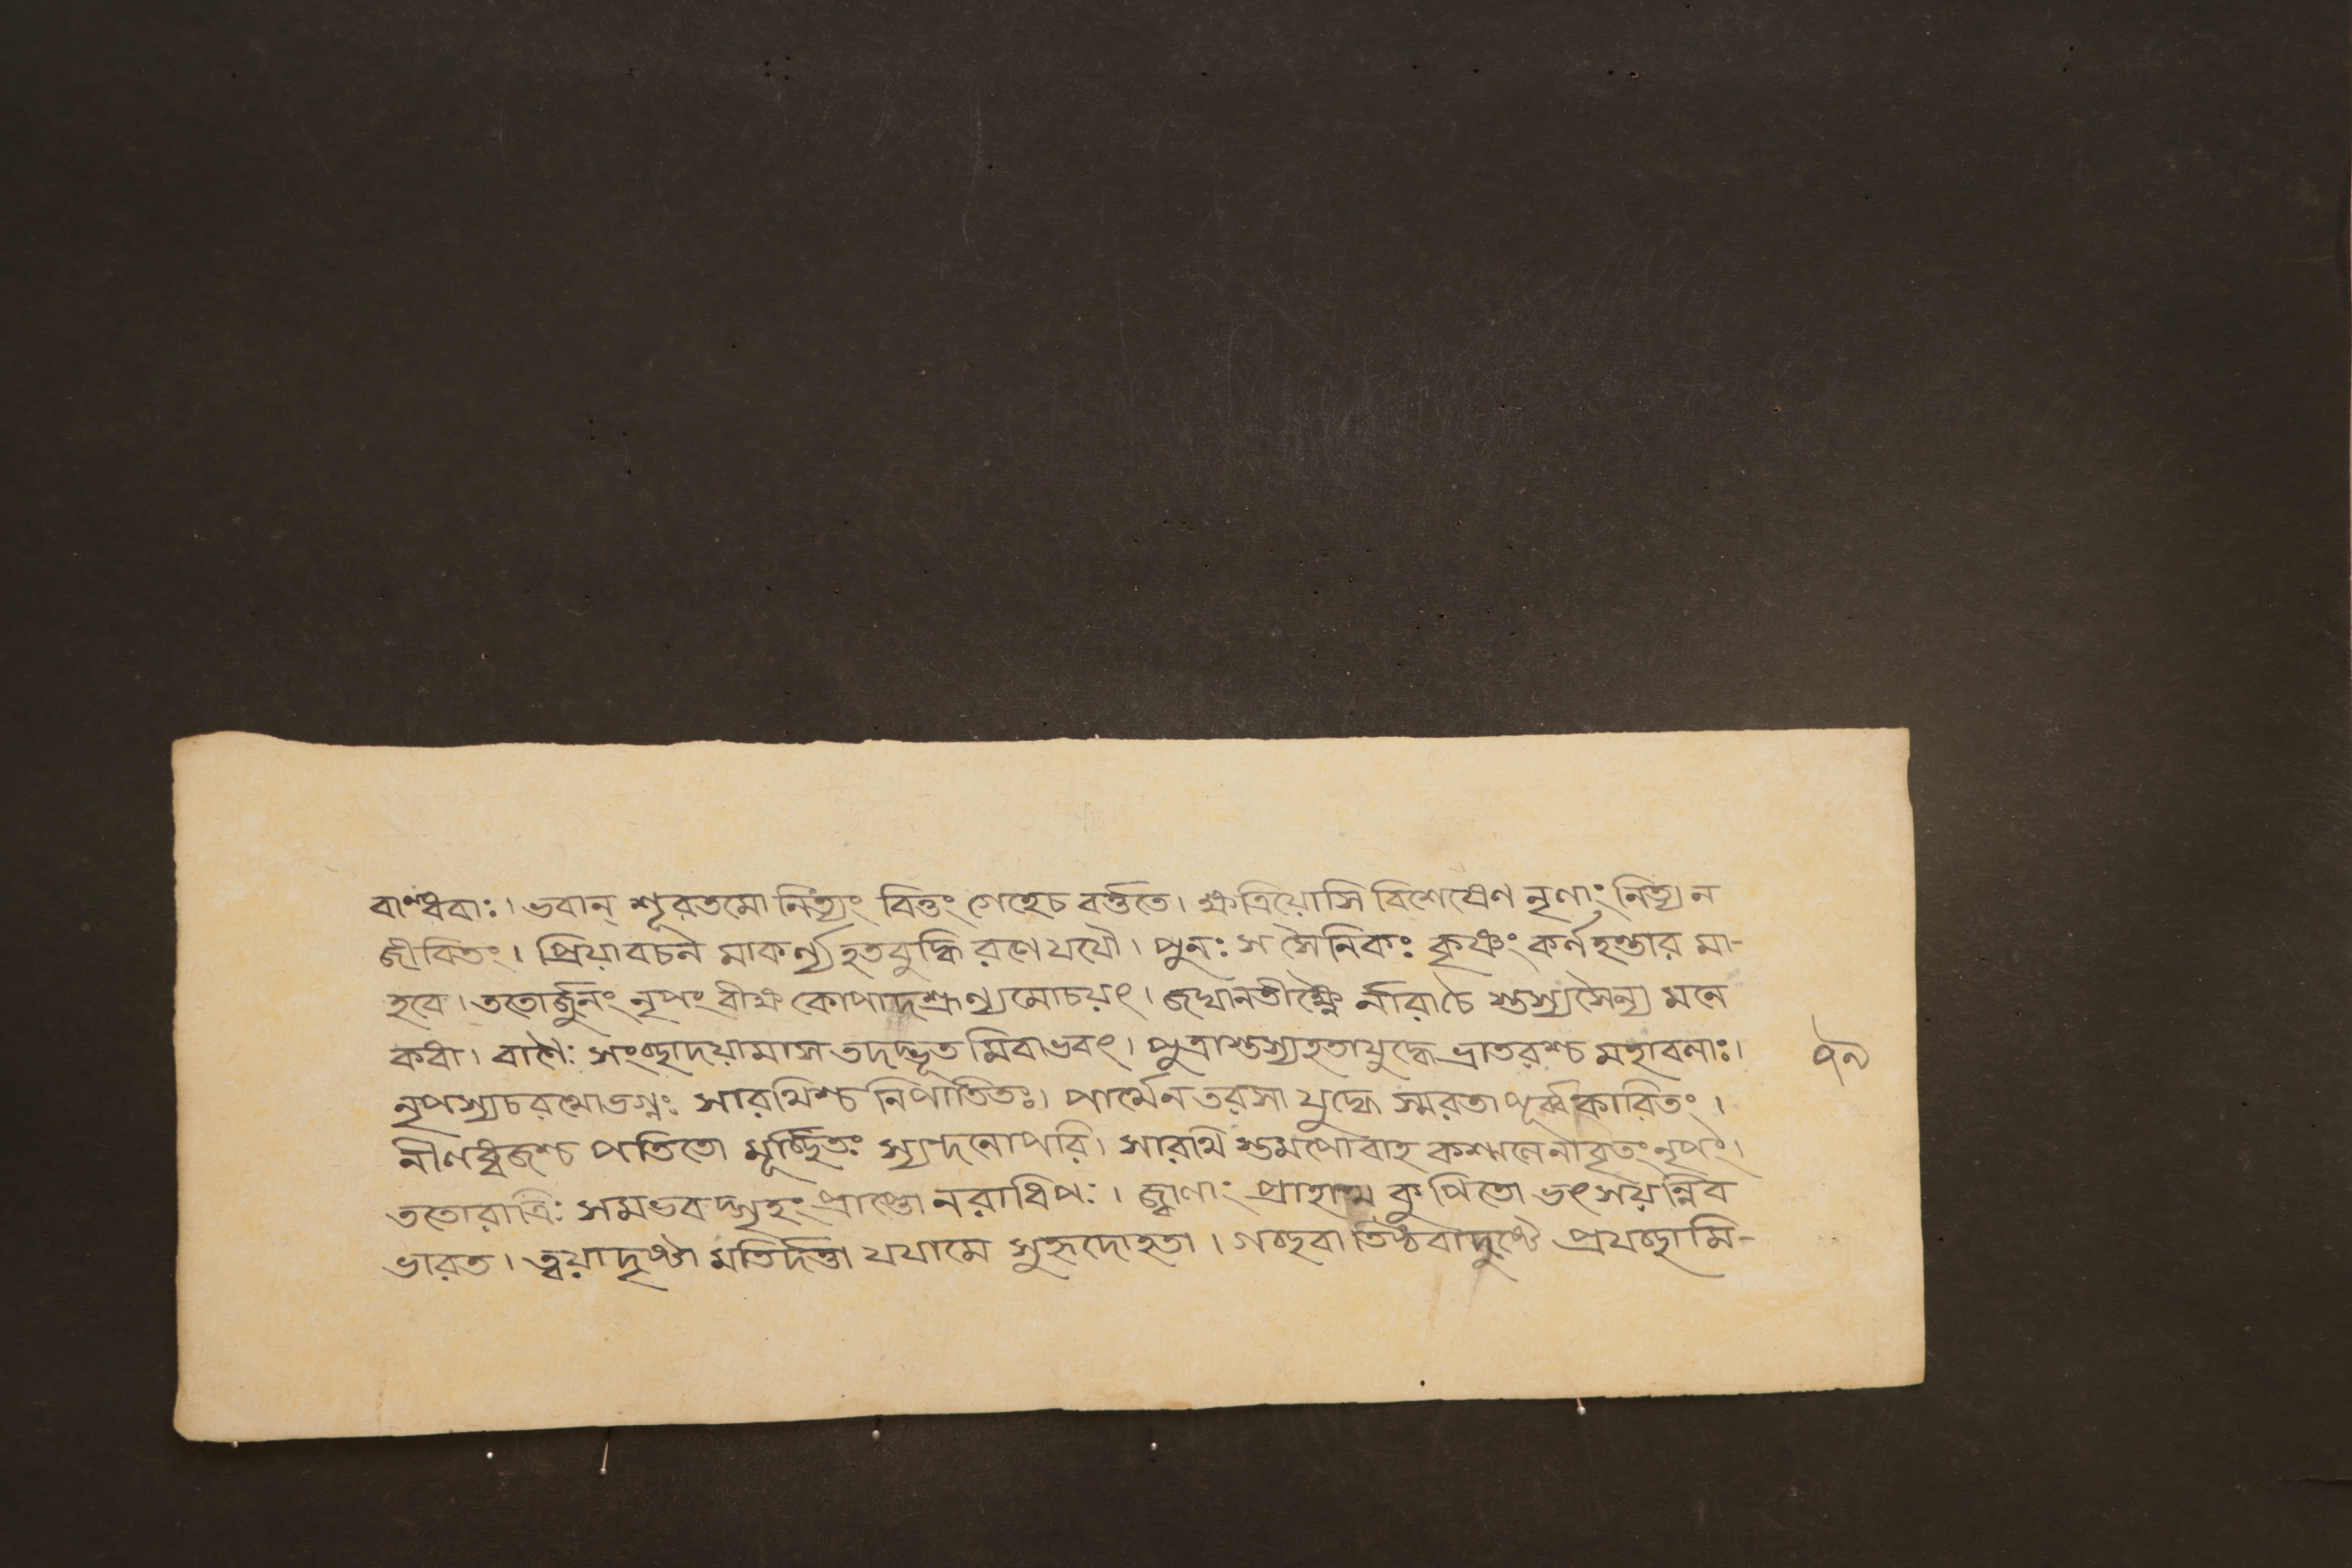 বান্ধবাঃ। ভবান্ শূরতমো নিত্যং বিত্তং গেহেচ বর্ত্ততে। ক্ষত্রিয়োসি বিশেষেণ নৃণাং নিত্য ন
জীবিতং। প্রিয়াবচন মাকর্ণ্য হতবুদ্ধি রণে যযৌ। পুনঃ স সৈনিকঃ কৃষ্ণং কর্ণ হন্তার মা-
হবে। ততোর্জুনং নৃপং বীক্ষ কোপাদশ্রূণ্যমোচয়ৎ। জঘানতীক্ষ্ণৈ র্নারাচৈ স্তস্যসৈন্য মনে
কধা। বাণৈঃ সংচ্ছাদয়ামাস তদদ্ভূত মিবাভবৎ। পুত্রাস্তস্যহতাযুদ্ধে ভ্রাতরশ্চ মহাবলাঃ।
নৃপস্যচরথোভগ্নঃ সারথিশ্চ নিপাতিতঃ। পার্থেন তরসা যুদ্ধে স্মরতা পূর্ব্বকারিতং।
নীলধ্বজশ্চ পতিতো মূর্চ্ছিতঃ স্যন্দনোপরি। সারথি স্তমপোবাহ কশ্মলেনাবৃতং নৃপং।
ততোরাত্রিঃ সমভবদ্গৃহং প্রাপ্তো নরাধিপঃ। জ্বালাং প্রাহাথ কুপিতো ভৎসয়ন্নিব
ভারত। ত্বয়াদুষ্টা মতির্দত্তা যযামে সুহৃদোহতা। গচ্ছবা তিষ্ঠবাদুষ্টে প্রযচ্ছামি-
৭৯